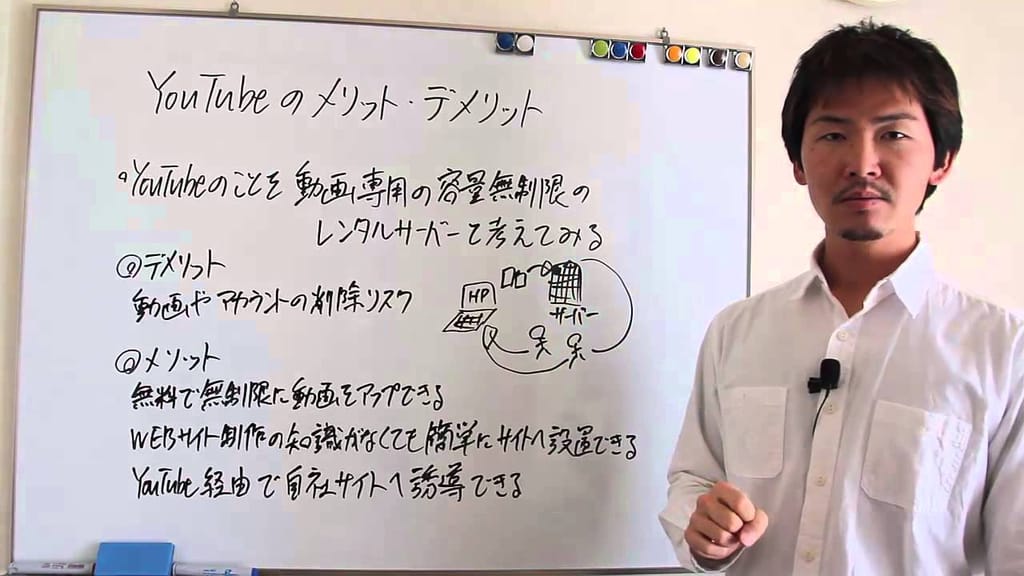 YouTubeのメリット・デメリット
YouTubeのことを動画専用の容量無制限の
レンタルサーバーと考えてみる
デメリット
動画やアカウントの削除リスク
HP
サーバー
メリット
無料で無制限に動画をアップできる
WEBサイト制作の知識がなくても簡単にサイトへ設置できる
YouTube経由で自社サイトへ誘導できる